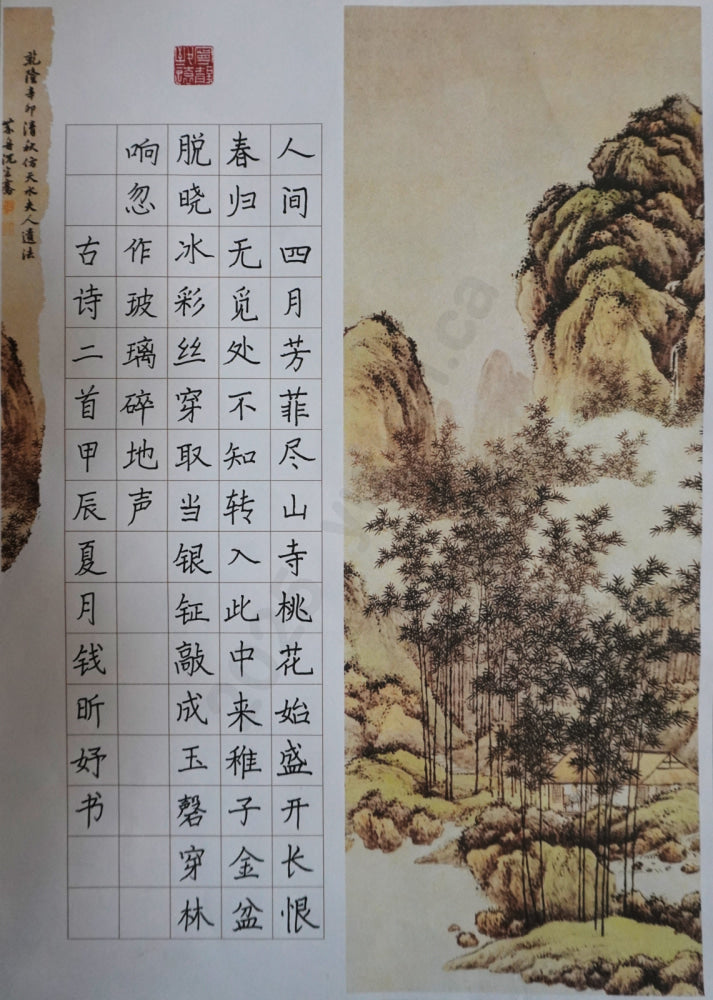 人间四月芳菲尽山寺桃花始盛开长恨
春归无觅处不知转入此中来稚子金盆
脱晓冰彩丝穿取当银钲敲成玉磬穿林
响忽作玻璃碎地声
古诗二首甲辰夏月钱昕妤书
乾隆辛卯清秋仿天水夫人遗法
芥舟沈宗骞